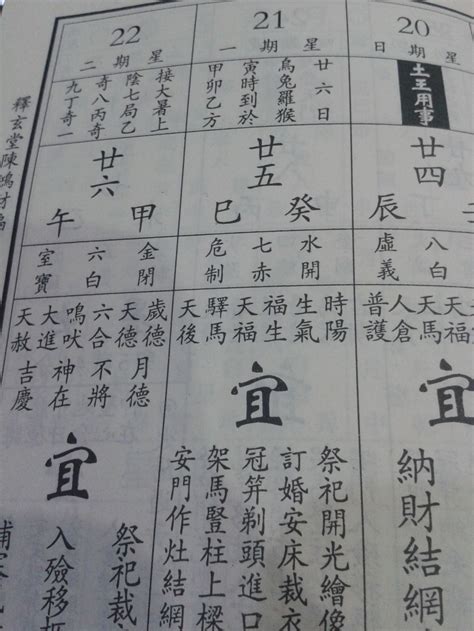 20
星期日
土王用事
廿四
辰
八白
虛義
天馬
人倉
普護
宜
納財結網
21
星期一
廿六日
烏兔羅猴
寅時到於
甲卯乙方
廿五
癸巳
水開
七赤
危制
時陽
生氣
福生
天福
驛馬
天後
宜
祭祀開光繪像
訂婚安床裁衣
冠笄剃頭進口
架馬豎柱上樑
安門作灶結網
22
星期二
接大暑上
陰七局乙
奇八丙奇
九丁奇一
廿六
甲午
金閉
六白
室寶
歲德
天德
六合
鳴吠
大進
天赦
月德
不將
神在
吉慶
宜
祭祀裁
入殮移
釋玄堂陳鴻才編